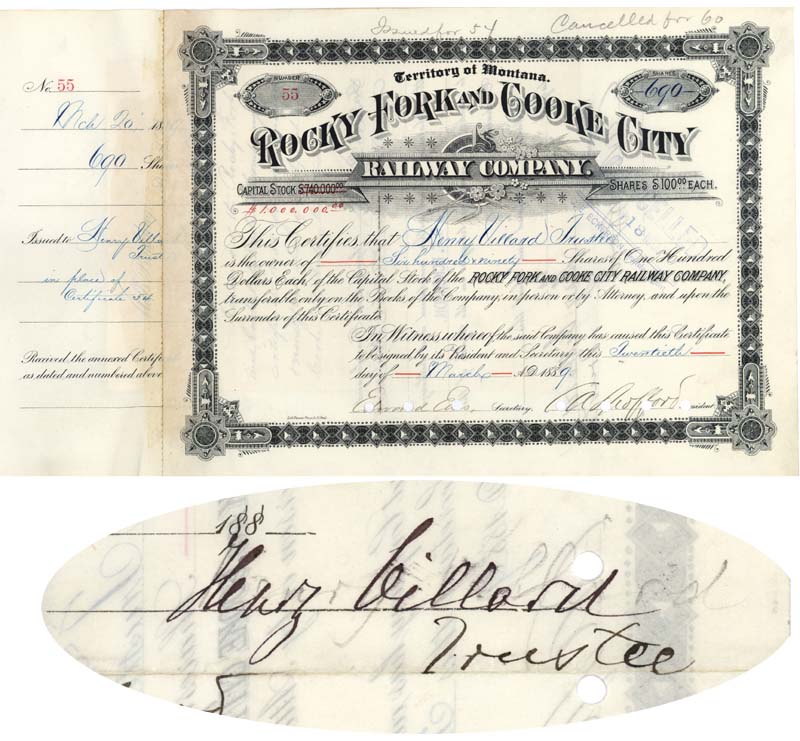 Issued for 54 Cancelled for 60
No. 55
Mch 20 18
690 Sha
Issued to Henry Villa
Trust
in place of
Certificate 54
Received the annexed Certifi
as dated and numbered above
NUMBER
55
Territory of Montana.
SHARES
690
ROCKY FORK AND COOKE CITY
RAILWAY COMPANY.
CAPITAL STOCK $740.000.00
$1,000,000.00
SHARES $100.00 EACH.
This Certifies that Henry Villard Trustee
is the owner of Six hundred & ninety Shares of One Hundred
Dollars Each, of the Capital Stock of the ROCKY FORK AND COOKE CITY RAILWAY COMPANY,
transferable only on the Books of the Company, in person or by Attorney, and upon the
Surrender of this Certificate.
In Witness whereof the said Company has caused this Certificate
to be signed by its President and Secretary this Twentieth
day of March A.D. 1889
Secretary. President
188
Henry Villard
Trustee